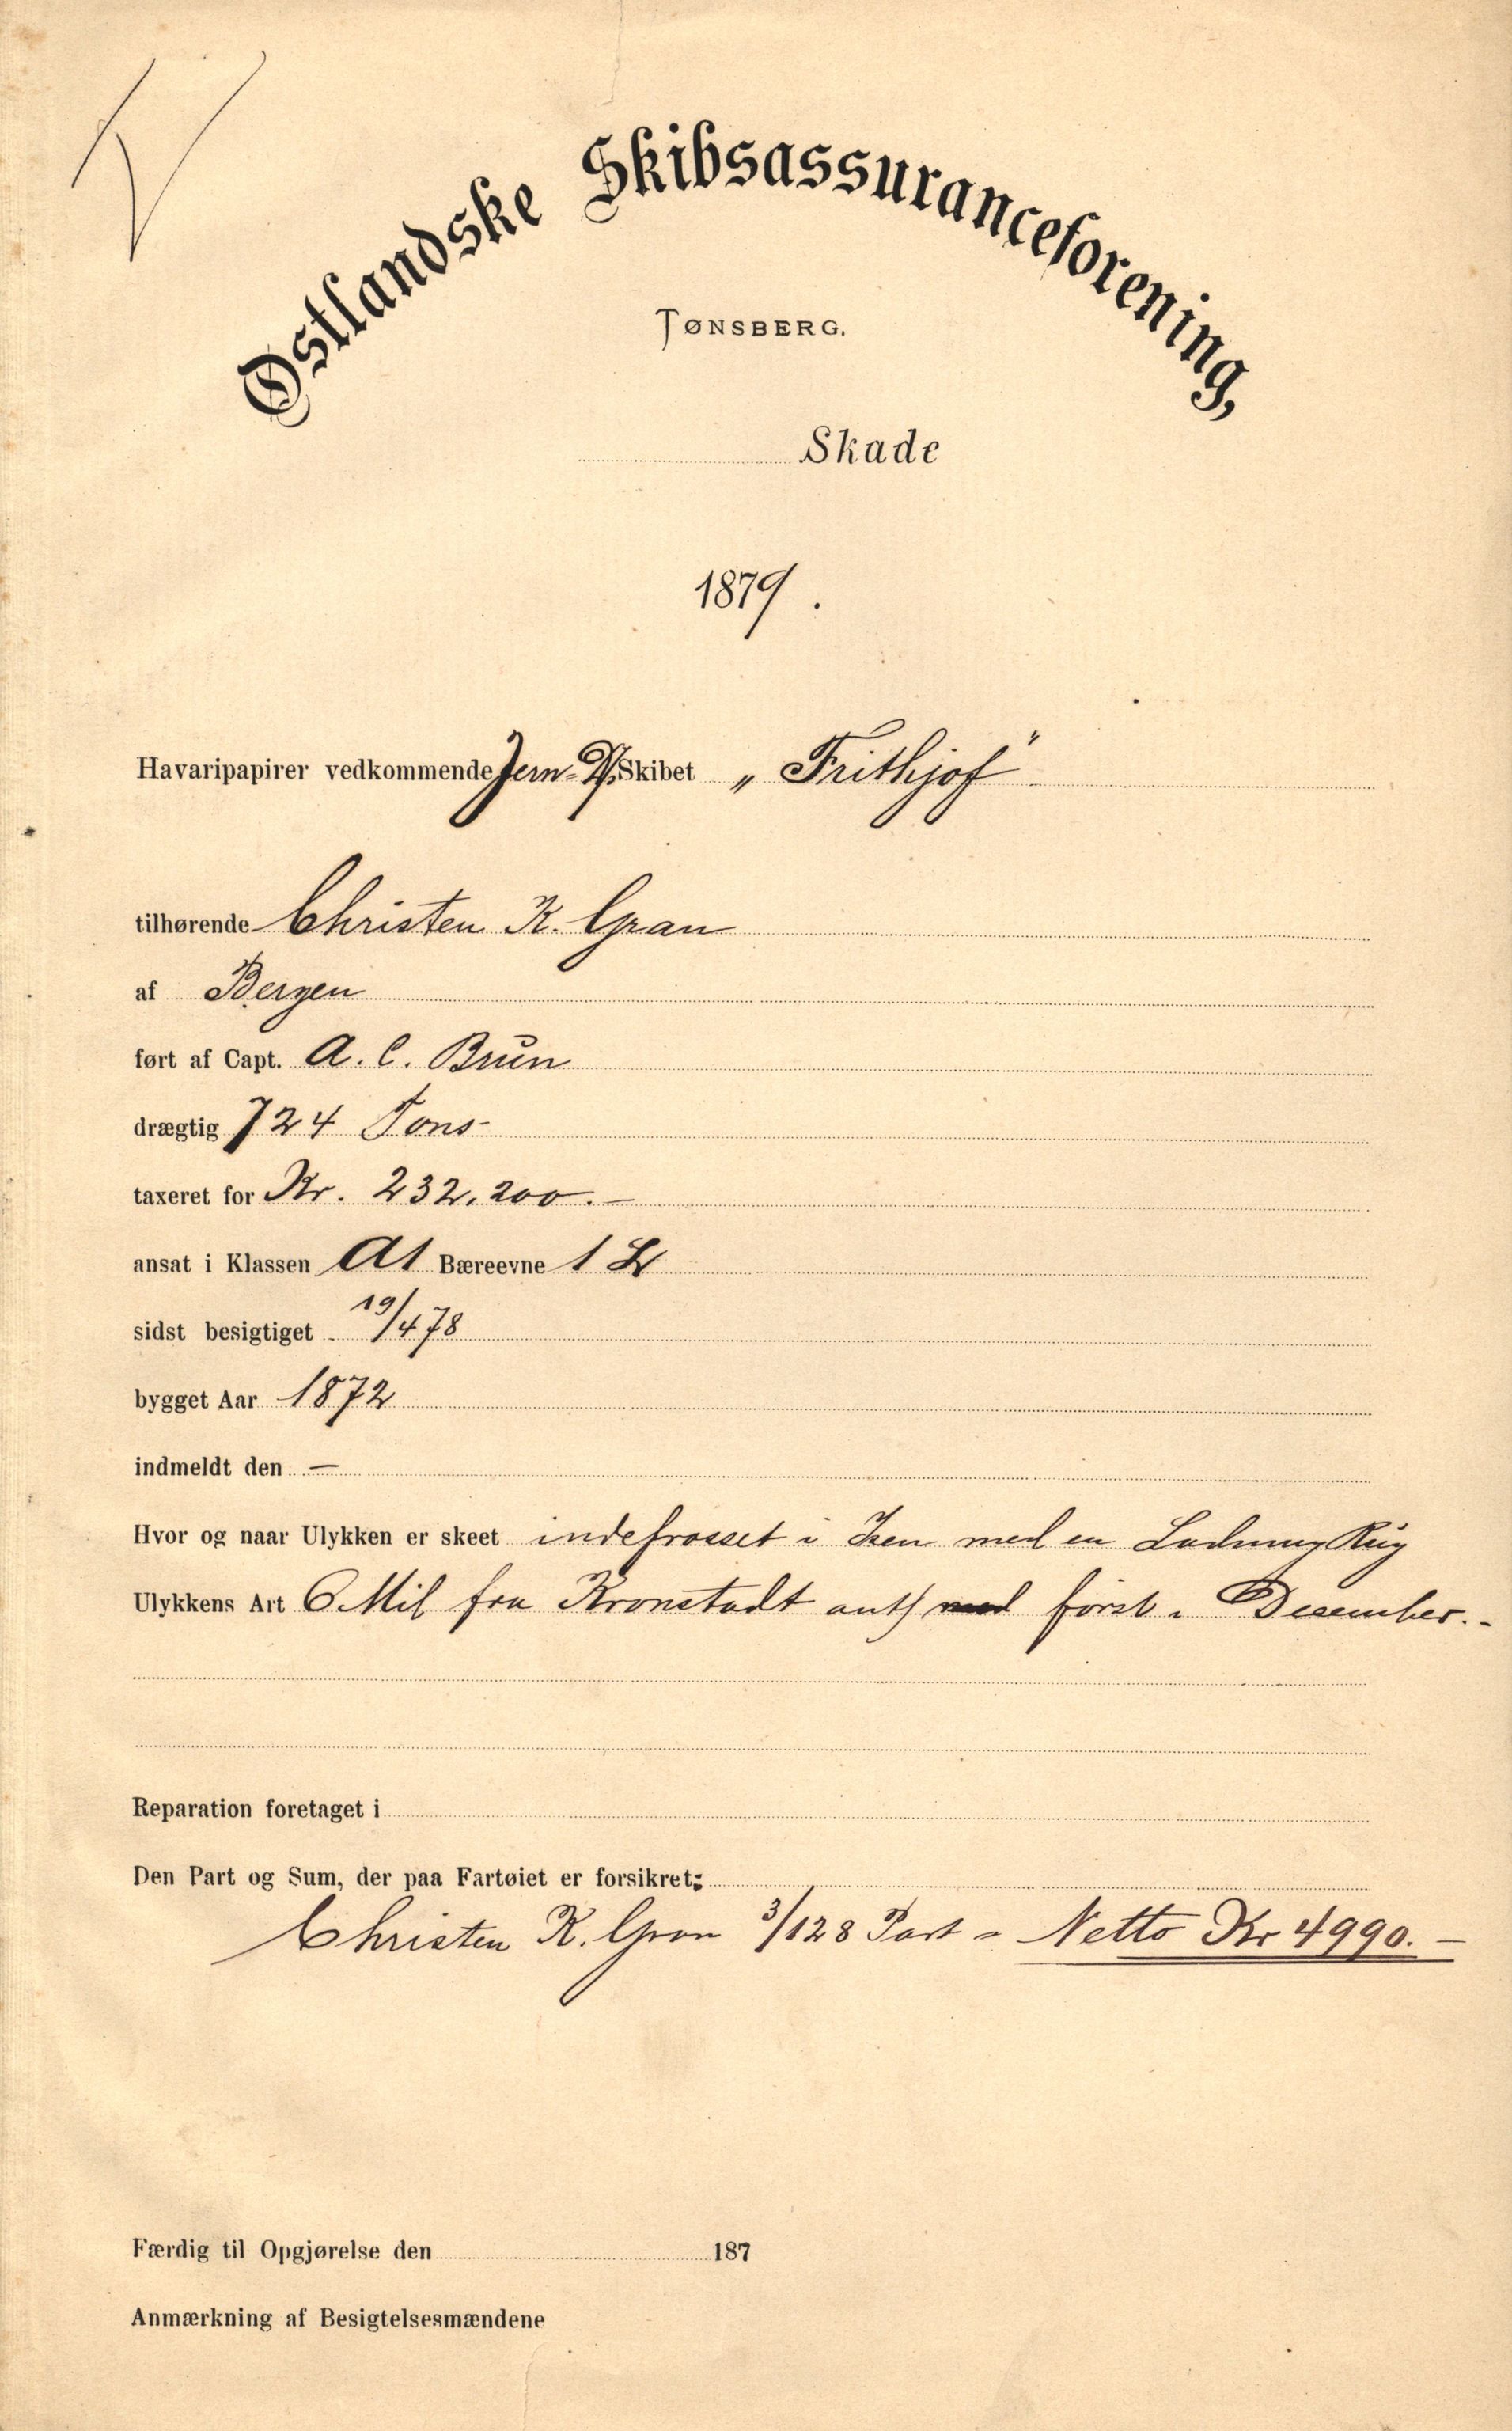 Østlandske Skibsassuranceforening,
TØNSBERG.
Skade
1879.
Havaripapirer vedkommende Jern-D/Skibet „Frithjof"
tilhørende Christen K. Gran
af Bergen
ført af Capt. A. C. Brun
drægtig 724 Tons
taxeret for Kr. 232,200.–
ansat i Klassen A1 Bæreevne 1 L
sidst besigtiget 19/4 78
bygget Aar 1872
indmeldt den –
Hvor og naar Ulykken er skeet indefrosset i Isen med en Ladning Rug
Ulykkens Art 6 Mil fra Kronstadt først i December.-
Reparation foretaget i
Den Part og Sum, der paa Fartøiet er forsikret:
Christen K. Gran 3/128 Part = Netto Kr 4990.–
Færdig til Opgjørelse den 187
Anmærkning af Besigtelsesmændene